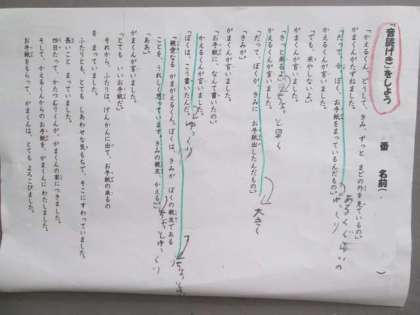 「音読げき」をしよう
番 名前( )
「かえるくん、どうして、きみ、ずっと まどの外を見ているの」
がまくんがたずねました。
「だって、今、ぼく、お手紙をまっているんだもの」
かえるくんが言いました。
「でも、来やしないよ」
がまくんが言いました。
「きっと来るよ」
かえるくんが言いました。
「だって、ぼくが、きみに お手紙出したんだもの」
大きく
「きみが」
がまくんが言いました。
「お手紙に、なんて書いたの」
かえるくんが言いました。
「ぼくは、こう書いたんだ。
ゆっくり
『親愛なる がまがえるくん。ぼくは、きみが ぼくの親友である
ことを、うれしく思っています。きみの親友、かえる』」
「ああ」
がまくんが言いました。
「とても いいお手紙だ」
それから、ふたりは、げんかんに出て、お手紙の来るの
を まっていました。
ふたりとも、とても しあわせな気もちで、そこにすわっていました。
長いこと まっていました。
四日たって、かたつむりくんが、がまくんの家につきました。
そして、かえるくんからのお手紙を、がまくんにわたしました。
お手紙をもらって、がまくんは、とても よろこびました。